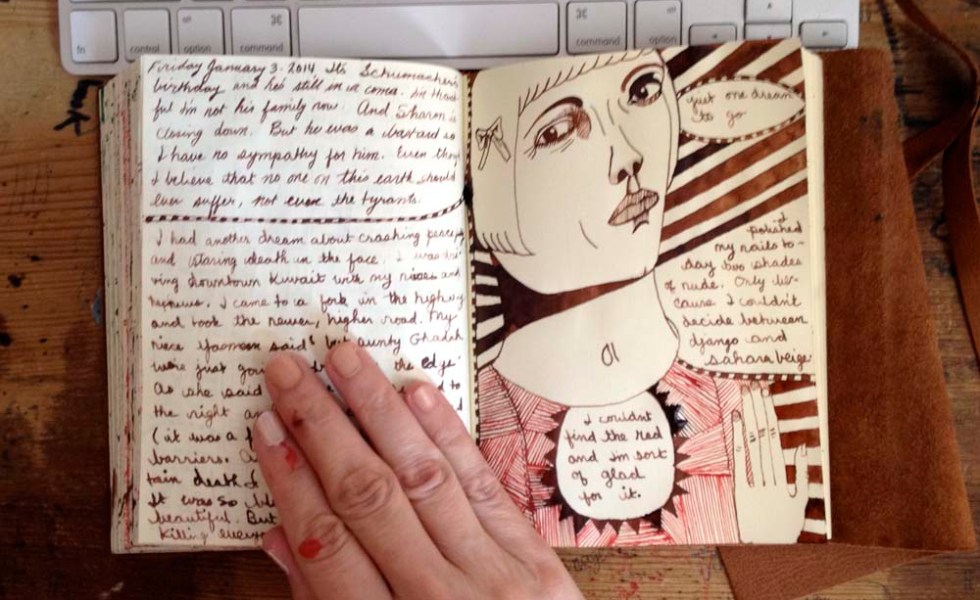 fn
control
option
command
command
option
Friday January 3. 2014 Its Schumacher's
birthday and he's still in a coma. Im thank
ful im not his family now. And Sharon is
closing down. But he was a bastard so
I have no sympathy for him. Even tho
I believe that no one on this earth should
ever suffer, not even the tyrants.
I had another dream about crashing
and staring death in the face. I was dri-
ving downtown Kuwait with my nieces and
nephews. I came to a fork in the highway
and took the newer, higher road. My
niece Yasmeen said " but aunty Ghadah
we're just goi the edge
As she said to
the right an
( it was a f
barriers. a
tain death. I
It was so bl
beautiful. But
killing everyo
just one dream
to go
I
polished
my nails to-
day two shades
of nude. Only be-
cause I couldn't
decide between
django and
sahara beige.
I couldn't
find the red
and im sort
of glad
for it.